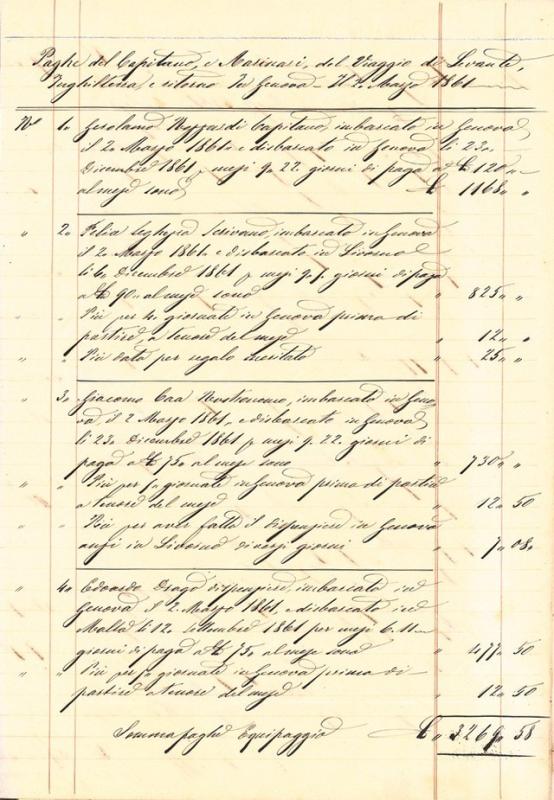 Paghe del Capitano, e Marinari, del Viaggio di Levante,
Inghilterra e ritorno In Genova - Il 2. Marzo 1861
N° 1. Gerolamo Capitano, imbarcato in Genova
il 2. Marzo 1861. e disbarcato in Genova li 23.
Dicembre 1861 p mesi 9. 22. giorni di paga a £ 120 „
al mese sono £ 1168 „ „
„ 2. Felice Scrivano, imbarcato in Genova
il 2. Marzo 1861. e disbarcato in Livorno
li 6. Dicembre 1861 p mesi 9. 5. giorni di paga
a £ 90. al mese sono „ 825 „ „
„ „ Più per 4. giornate in Genova prima di
partire, a tenore del mese „ 12 „ „
„ „ Più data per regalo meritato „ 25 „ „
„ 3. Giacomo Nostruomo, imbarcato in Geno-
va, il 2 Marzo 1861, e disbarcato in Genova
li 23. Dicembre 1861 p mesi 9. 22. giorni di
paga a £ 75. al mese sono „ 730 „ „
„ „ Più per 5. giornate in Genova prima di partire
a tenore del mese „ 12 „ 50
„ „ Più per aver fatto il dispensiere in Genova
anzi in Livorno diversi giorni „ 7 „ 08
„ 4. Edoardo Drago dispensiere, imbarcato in
Genova il 2. Marzo 1861, e disbarcato in
Malta li 12. Settembre 1861 per mesi 6. 11
giorni di paga a £ 75. al mese sono „ 477 „ 50
„ „ Più per 5. giornate in Genova prima di
partire a tenore del mese „ 12 „ 50
Somma paghe Equipaggio £ „ 3269 „ 58